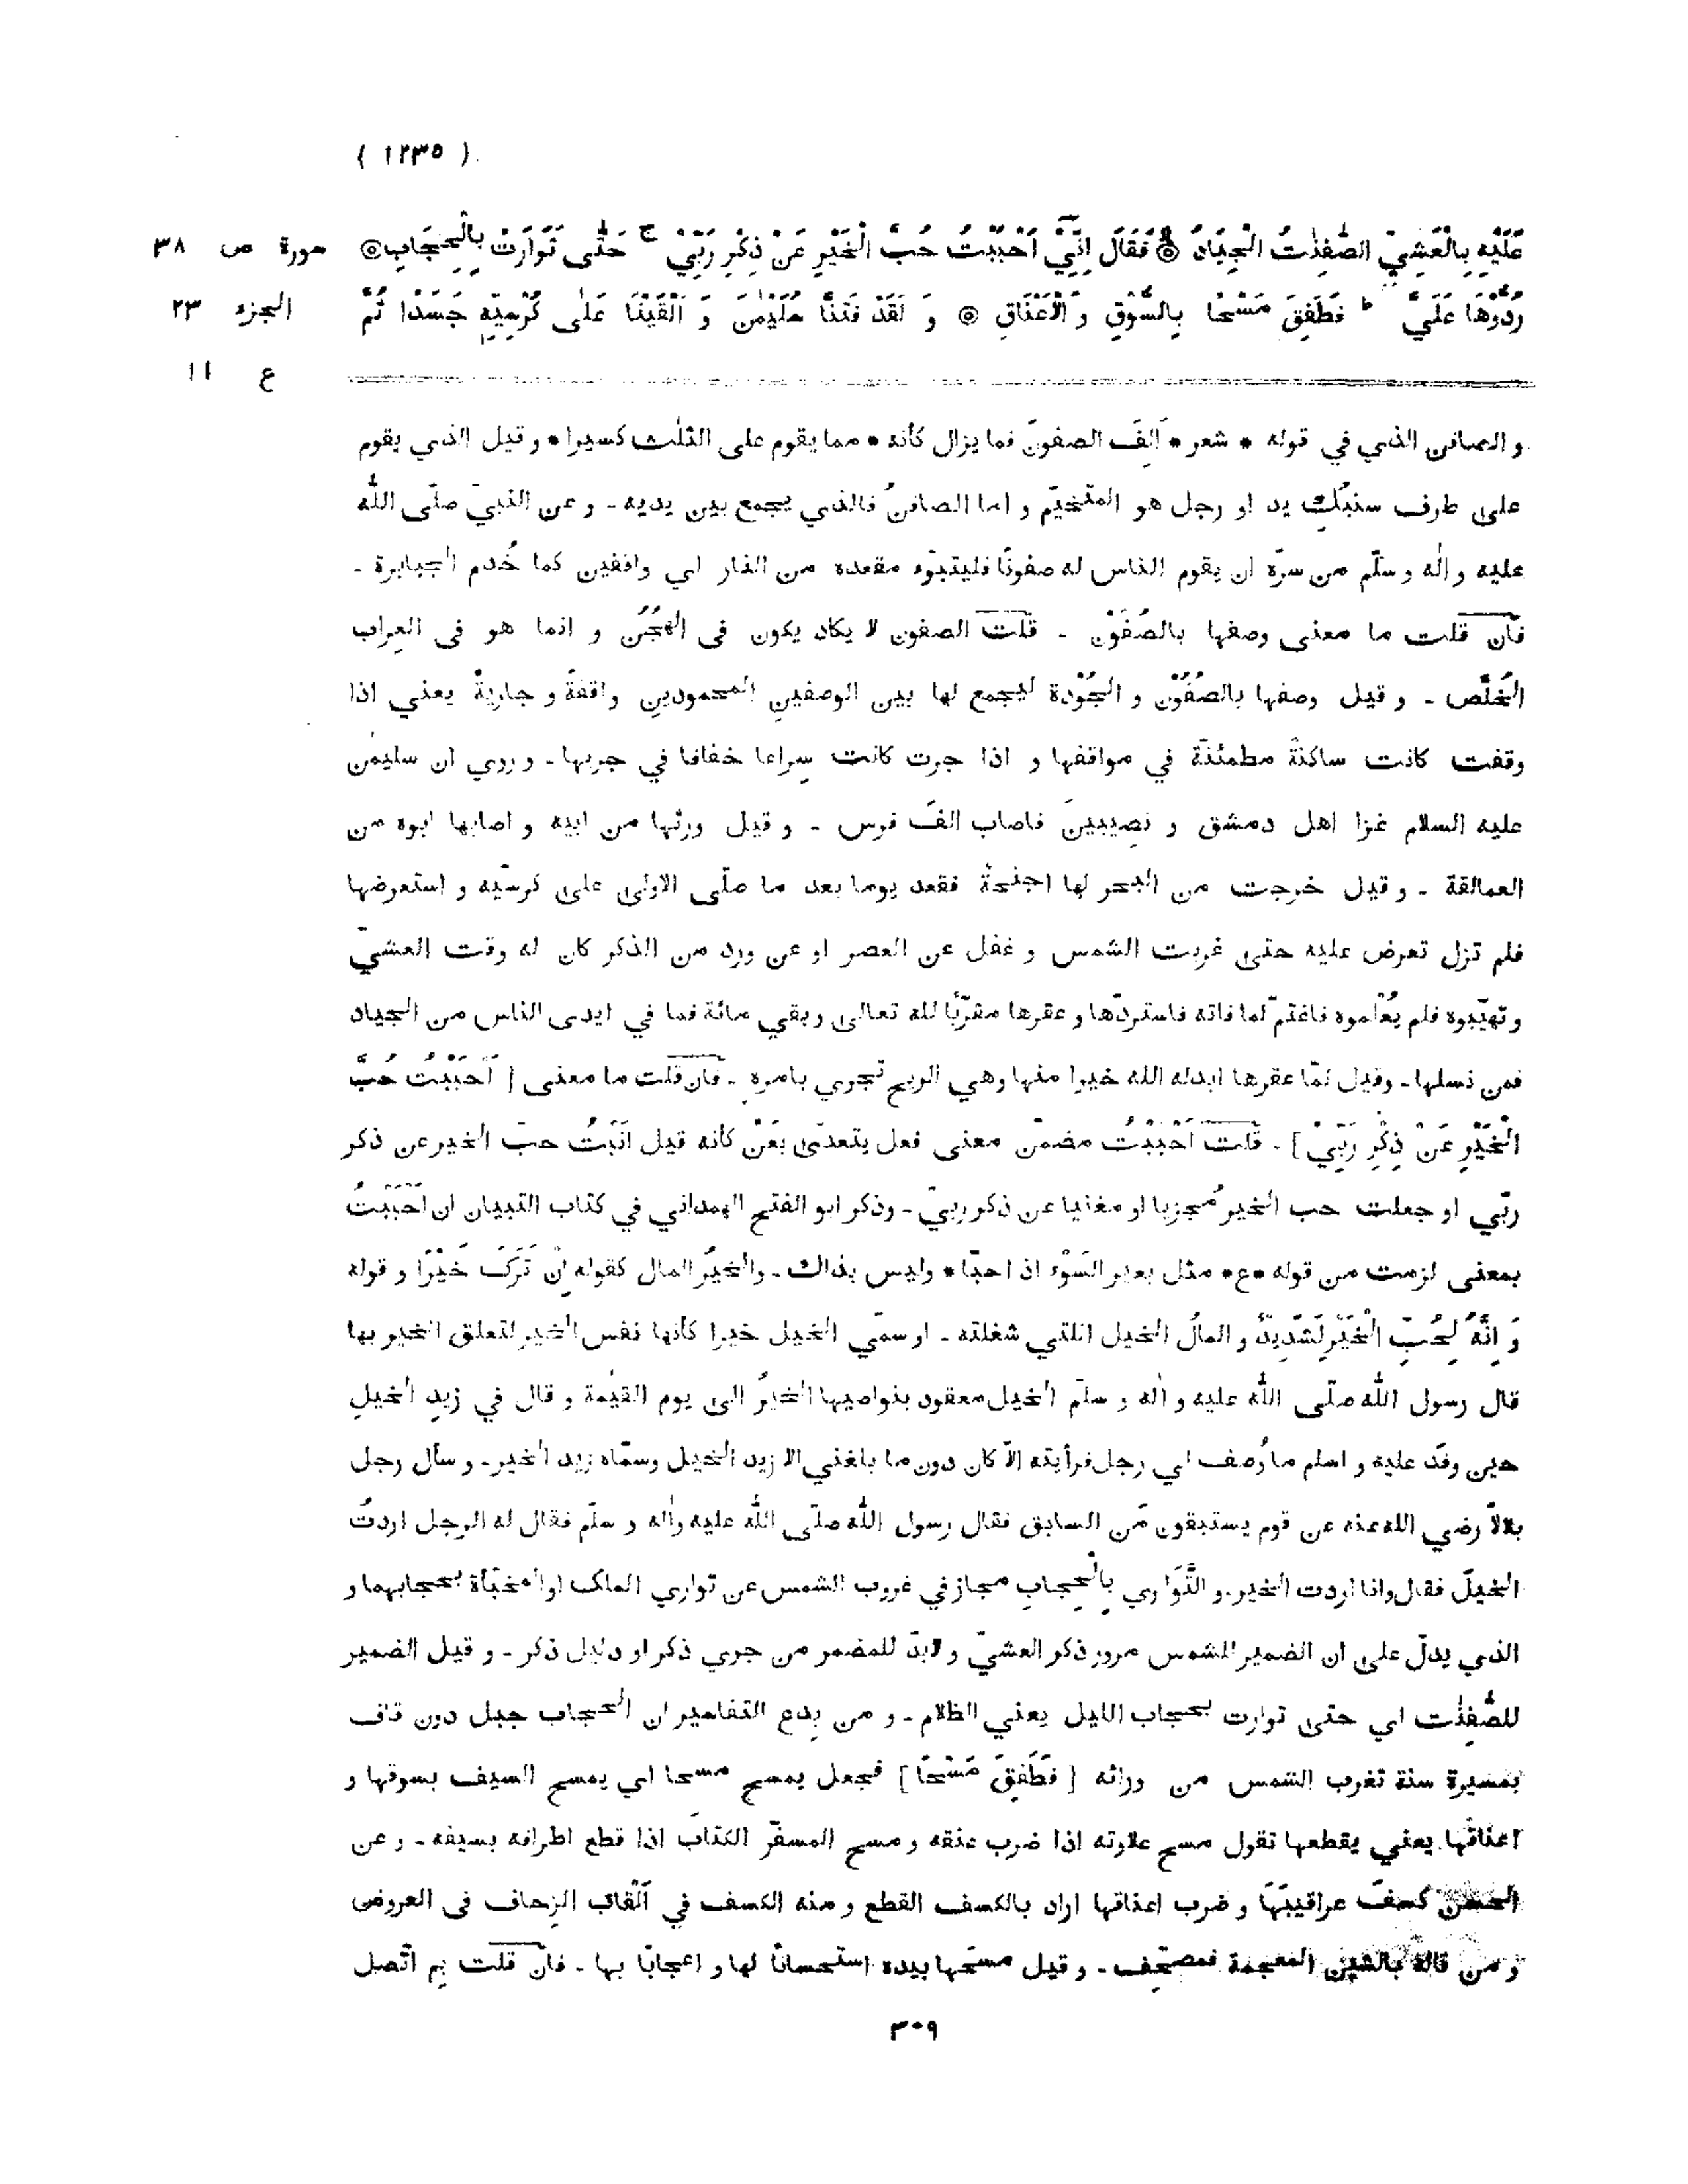 ( ١٢٣٥ )
عَلَيْهِ بِالْعَشِيِّ الصّٰفِنٰتُ الْجِيَادُ ۞ فَقَالَ اِنِّيْٓ اَحْبَبْتُ حُبَّ الْخَيْرِ عَنْ ذِكْرِ رَبِّيْ ج حَتّٰى تَوَارَتْ بِالْحِجَابِ ۞
سورة ص ٣٨
رُدُّوْهَا عَلَيَّ ط فَطَفِقَ مَسْحًا بِالسُّوْقِ وَ الْاَعْنَاقِ ۞ وَ لَقَدْ فَتَنَّا سُلَيْمٰنَ وَ اَلْقَيْنَا عَلٰى كُرْسِيِّهٖ جَسَدًا ثُمَّ
الجزء ٢٣
ع ١١
و الصافن الذي في قوله * شعر * اَلِفَ الصفونَ فما يزال كأنه * مما يقوم على الثلٰث كسيرا * و قيل الذي يقوم
على طرف سنبُكِ يد او رجل هو المتخيّم و اما الصافنُ فالذي يجمع بين يديه - و عن النبيّ صلّى اللّٰه
عليه و اٰله و سلّم من سرّه ان يقوم الناس له صفونًا فليتبوّء مقعده من النار اي واقفين كما خُدم الجبابرة -
فان قلت ما معنى وصفها بالصُفُوْن - قلت الصفون لا يكاد يكون فى الهُجُن و انما هو فى العِراب
الخُلَّص - و قيل وصفها بالصُفُوْن و الجُوْدة ليجمع لها بين الوصفين المحمودين واقفةً و جاريةً يعني اذا
وقفت كانت ساكنةً مطمئنّة في مواقفها و اذا جرت كانت سِراعا خفافا في جريها - و روي ان سليمٰن
عليه السلام غزا اهل دمشق و نصيبينَ فاصاب الفَ فرس - و قيل ورثها من ابيه و اصابها ابوه من
العمالقة - و قيل خرجت من البحر لها اجنحةٌ فقعد يوما بعد ما صلّى الاولى على كرسّيه و استعرضها
فلم تزل تعرض عليه حتى غربت الشمس و غفل عن العصر او عن ورد من الذكر كان له وقت العشيّ
و تهيّبوه فلم يُعْلموه فاغتمّ لما فاته فاستردّها و عقرها مقرّبًا لله تعالى و بقي مائة فما في ايدى الناس من الجياد
فمن نسلها - وقيل لمّا عقرها ابدله الله خيرا منها وهي الريح تجري بامره - فان قلت ما معنى [ اَحْبَبْتُ حُبَّ
الْخَيْرِ عَنْ ذِكْرِ رَبِّيْ ] - قلت اَحْبَبْتُ مضمّن معنى فعل يتعدّى بعَنْ كانه قيل انَبتُ حبّ الخير عن ذكر
ربّي او جعلت حب الخير مُجزيا او مغنيا عن ذكر ربيّ - وذكر ابو الفتح الهمداني في كتاب التبيان ان اَحْبَبْتُ
بمعنى لزمت من قوله *ع* مثل بعير السَوْء اذ احبّا * وليس بذاك - والخيرُ المال كقوله اِنْ تَرَكَ خَيْرًا و قوله
وَ اِنَّهُ لِحُبِّ الْخَيْرِ لَشَدِيْدٌ و المالُ الخيل التي شغلته - او سمّي الخيل خيرا كأنها نفس الخير لتعلق الخير بها
قال رسول اللّٰه صلّى اللّٰه عليه و اٰله و سلّم الخيل معقود بنواصيها الخيرُ الى يوم القيٰمة و قال في زيدِ الخيلِ
حين وفَد عليه و اسلم ما وُصف لي رجل فرأيته الّا كان دون ما بلغني الا زيد الخيل وسمّاه زيد الخير - و سأل رجل
بلالًا رضي الله عنه عن قوم يستبقون مَن السابق فقال رسول اللّٰه صلّى اللّٰه عليه واٰله و سلّم فقال له الرجل اردتُ
الخيلَ فقال وانا اردت الخير - و التَّوَاري بِالْحِجابِ مجاز في غروب الشمس عن تواري الملك او المخبّأة بحجابهما و
الذي يدلّ على ان الضمير للشمس مرور ذكر العشيّ و لابدّ للمضمر من جري ذكر او دليل ذكر - و قيل الضمير
للصّٰفِنٰت اي حتى توارت بحجاب الليل يعني الظلام - و من بِدع التفاسير ان الحجاب جبل دون قاف
بمسيرة سنة تغرب الشمس من ورائه [ فَطَفِقَ مَسْحًا ] فجعل يمسح مسحا اي يمسح السيف بسوقها و
اعناقها يعني يقطعها تقول مسح علاوته اذا ضرب عنقه و مسح المسفّر الكتابَ اذا قطع اطرافه بسيفه - و عن
الحسن كسفَ عراقيبَها و ضرب اعناقها اراد بالكسف القطع و منه الكسف في اَلْقاب الزِحاف فى العروض
و من قاله بالشين المعجمة فمصحّف - و قيل مسحَها بيده استحسانًا لها و اعجابًا بها - فان قلت بِم اتّصل
٣٠٩